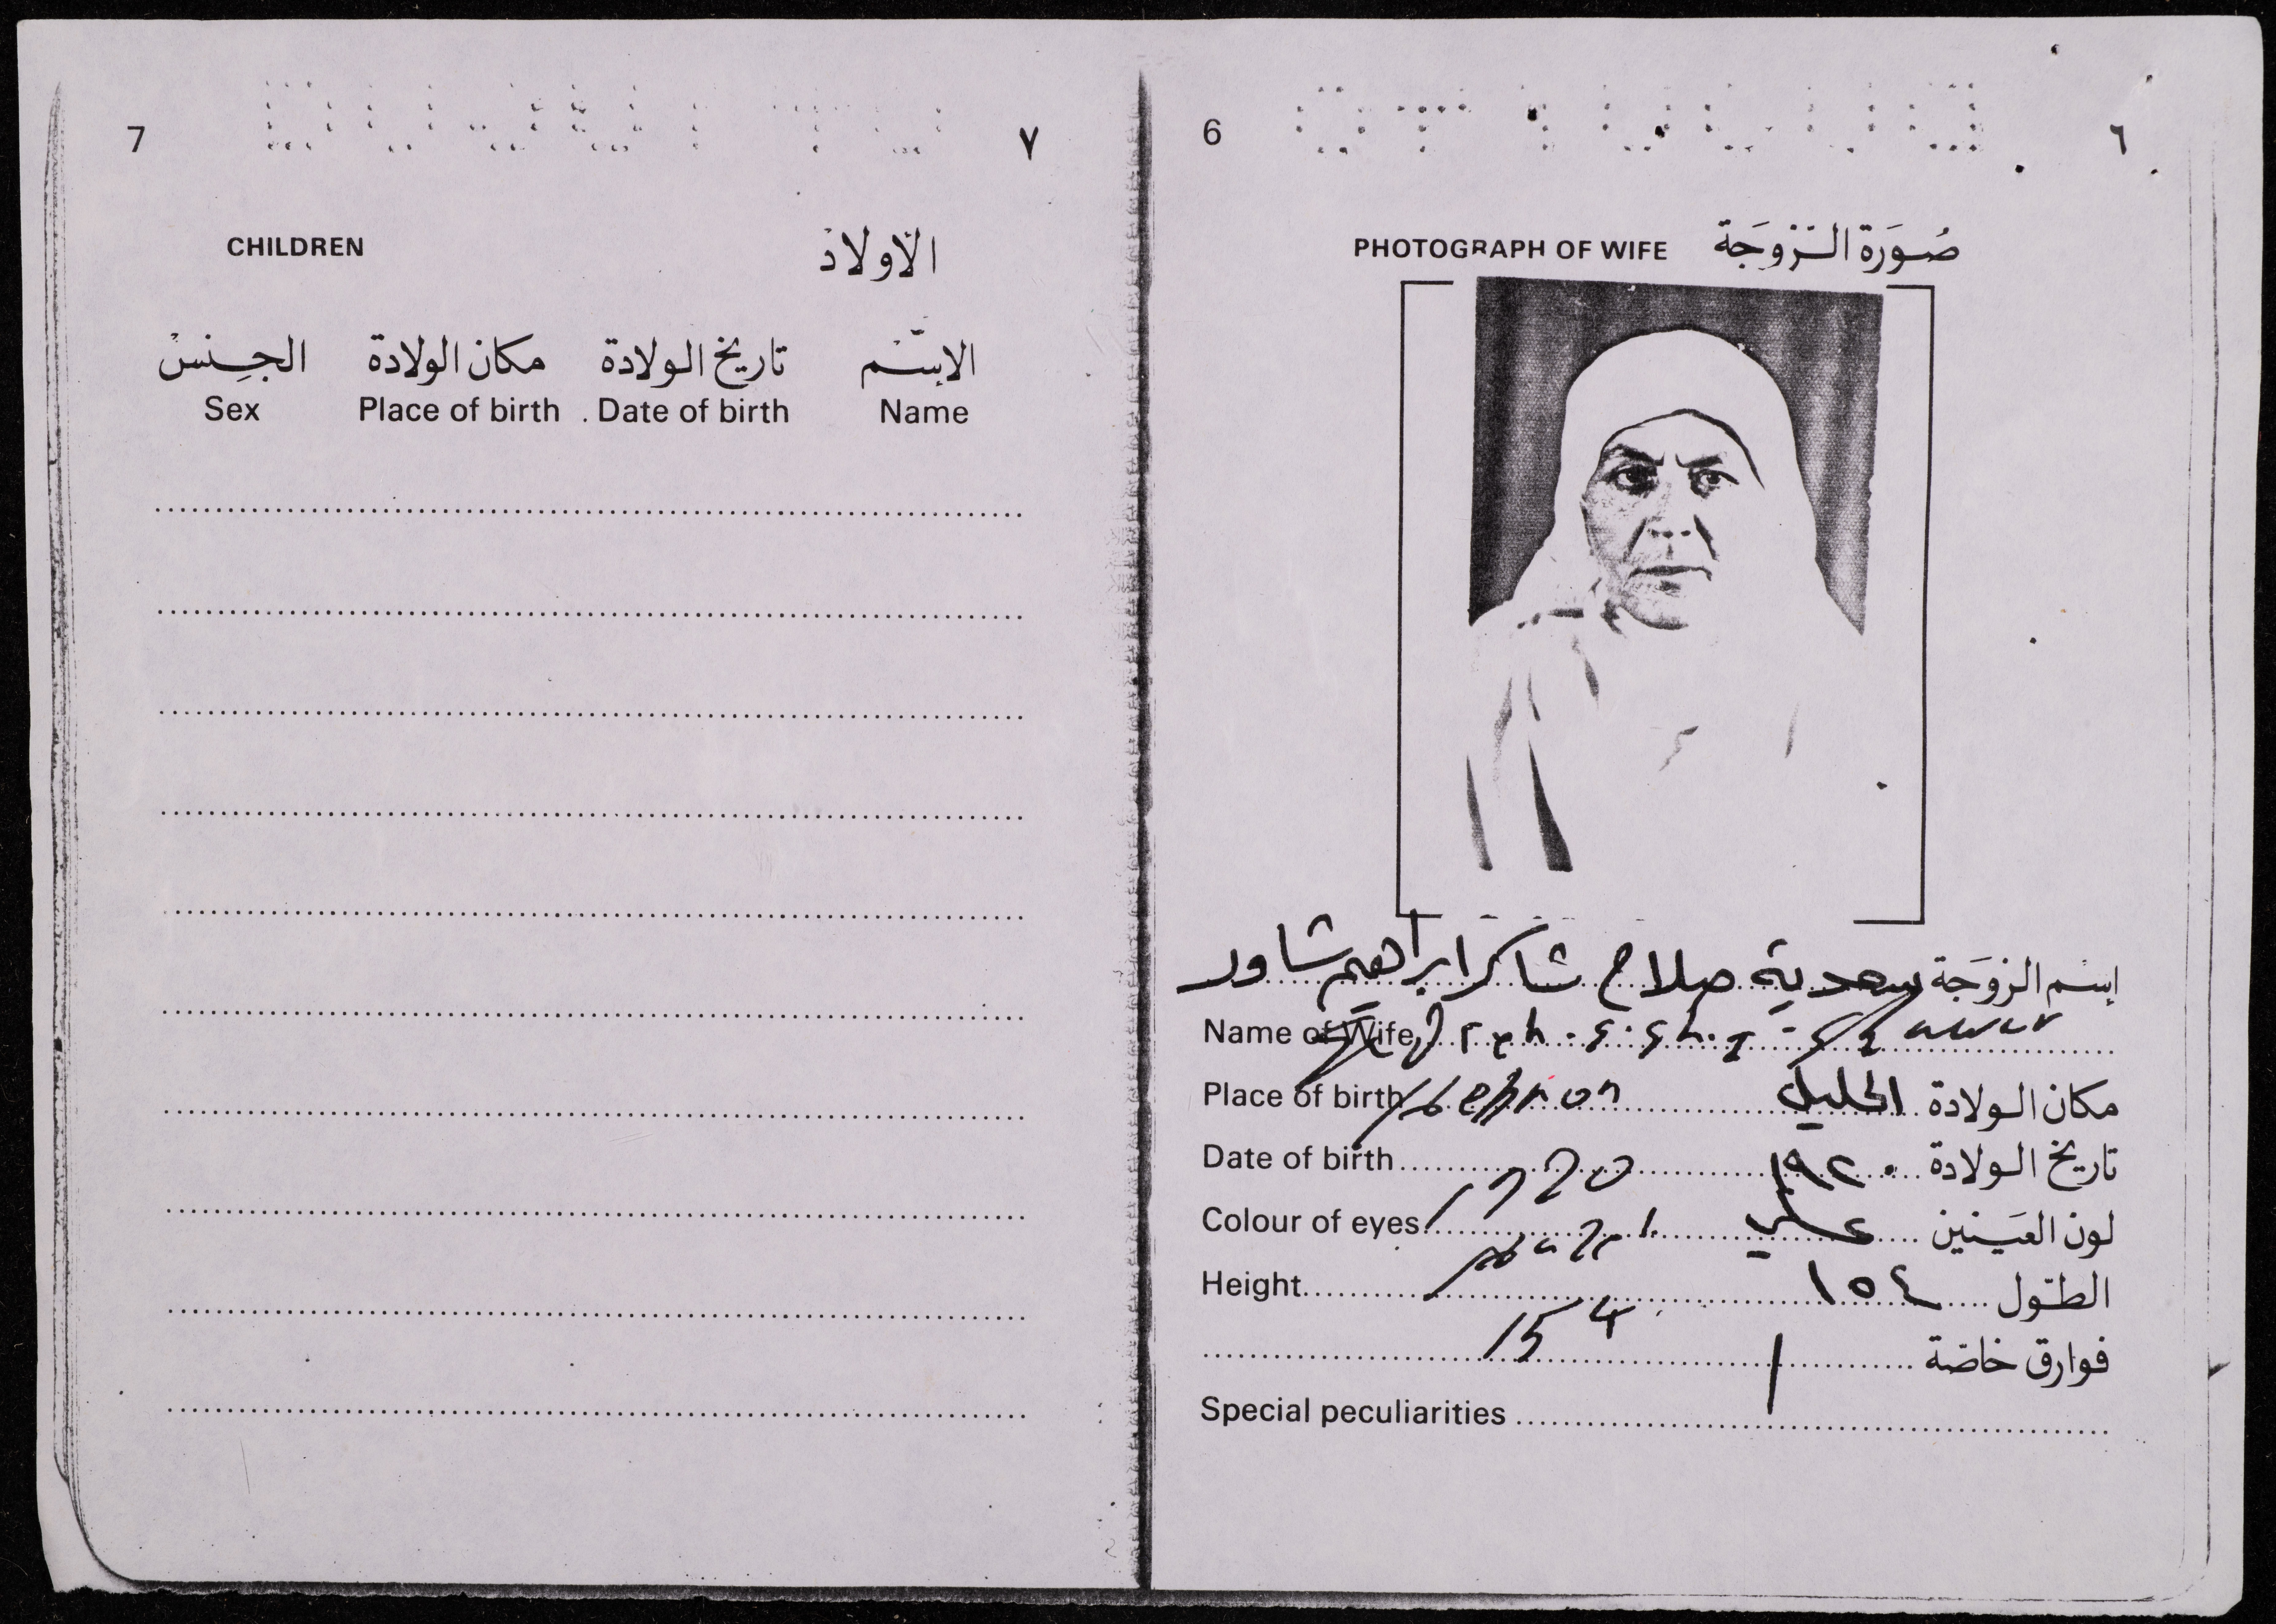 7 ٧
CHILDREN الأولاد
الجنس مكان الولادة تاريخ الولادة الاسم
Sex Place of birth Date of birth Name
6 ٦
PHOTOGRAPH OF WIFE صُورَة الزّوجَة
إسم الزوَجَة سعدية صلاح شاكر ابراهيم شاور
Name of Wife
Place of birth Hebron مكان الولادة الخليل
Date of birth 1920 تاريخ الولادة ١٩٢٠
Colour of eyes hazel لون العَينين عسلي
Height 154 الطول ١٥٤
فوارق خاصّة /
Special peculiarities